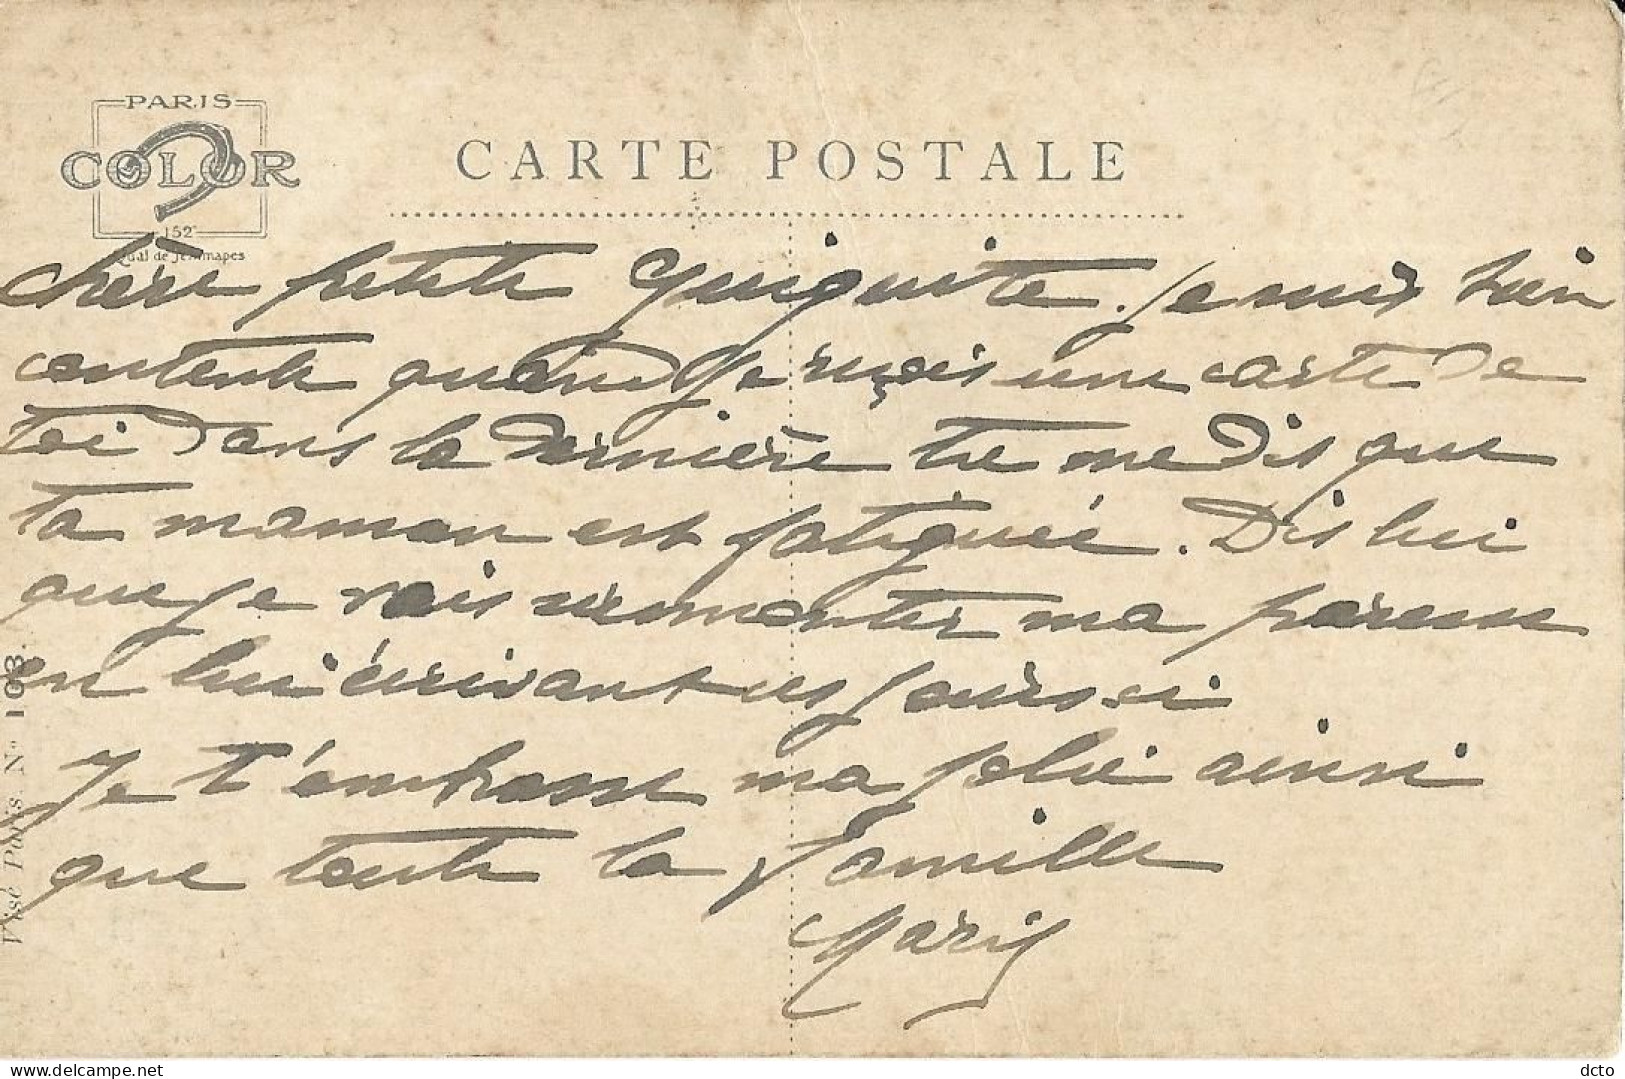 PARIS
COLOR
152
Quai de Jemmapes
CARTE POSTALE
Chère petite Guiguite. Je suis bien
contente quand je reçois une carte de
toi dans la dernière tu me dis que
ta maman est fatiguée. Dis lui
que je vais surmonter ma paresse
en lui écrivant ces jours ci
Je t'embrasse ma jolie ainsi
que toute la famille
Visé Paris. No 103.
delcampe.net
dcto